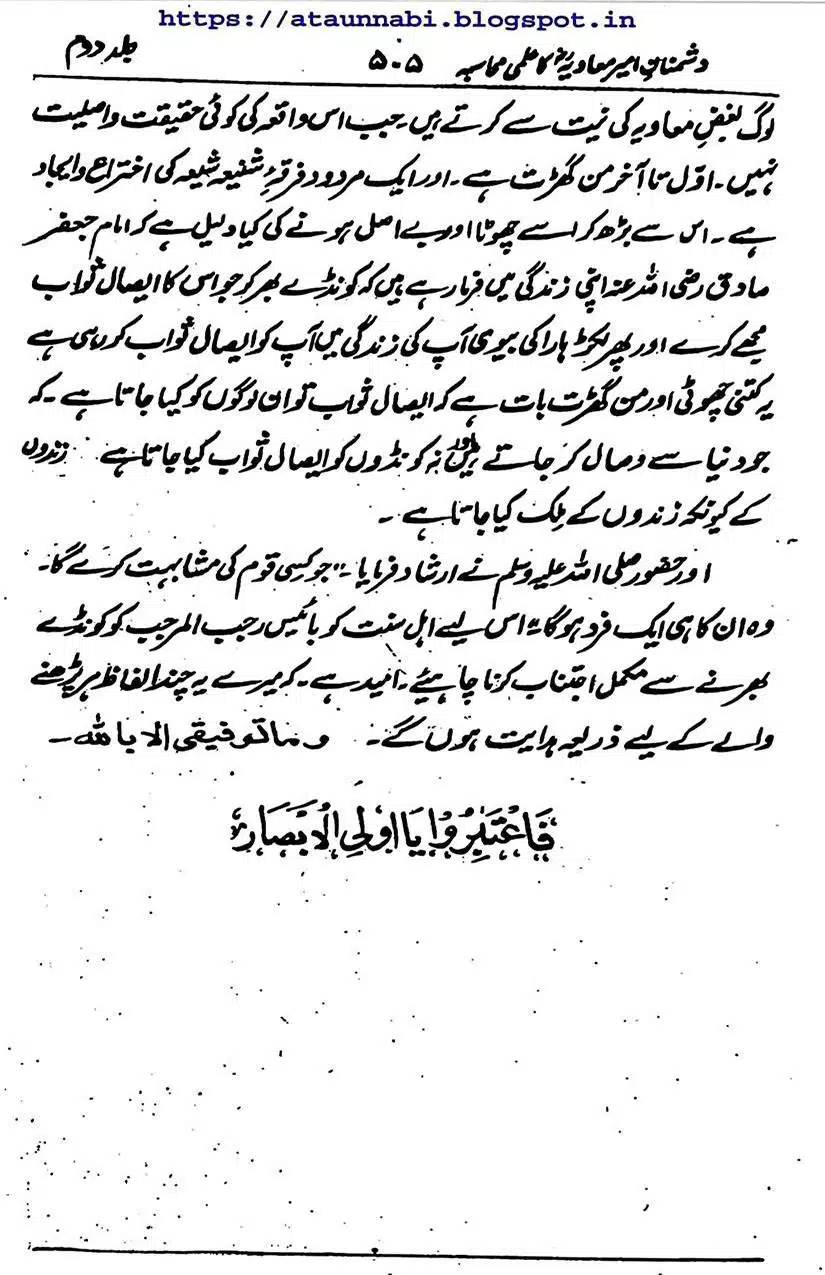 https://ataunnabi.blogspot.in
دشمنانِ امیر معاویہؓ کا علمی محاسبہ ۵۰۵ جلد دوم
لوگ بغضِ معاویہ کی نیت سے کرتے ہیں۔ جب اس واقعہ کی کوئی حقیقت و اصلیت
نہیں۔ اوّل تا آخر من گھڑت ہے۔ اور ایک مردود فرقۂ شنیعہ شیعہ کی اختراع و ایجاد
ہے۔ اس سے بڑھ کر اسے جھوٹا اور بے اصل ہونے کی کیا دلیل ہے کہ امام جعفر
صادق رضی اللہ عنہ اپنی زندگی میں فرما رہے ہیں کہ کونڈے بھر کو جو اس کا ایصال ثواب
مجھے کرے اور پھر لکڑ ہارا کی بیوی آپ کی زندگی میں آپ کو ایصال ثواب کر رہی ہے
یہ کتنی جھوٹی اور من گھڑت بات ہے کہ ایصال ثواب تو ان لوگوں کو کیا جاتا ہے۔ کہ
جو دنیا سے وصال کر جاتے ہیں اور نہ کونڈوں کو ایصال ثواب کیا جاتا ہے زندوں
کے کیونکہ زندوں کے لیے کیا جاتا ہے۔
اور حضور صلی اللہ علیہ وسلم نے ارشاد فرمایا۔ "جو کسی قوم کی مشابہت کرے گا۔
وہ ان کا ہی ایک فرد ہوگا" اس لیے اہل سنت کو بائیس رجب المرجب کو کونڈے
بھرنے سے مکمل اجتناب کرنا چاہیئے۔ امید ہے۔ کہ میرے یہ چند الفاظ ہر پڑھنے
والے کے لیے ذریعہ ہدایت ہوں گے۔ وما توفیقی الا باللہ۔
فَاعْتَبِرُوْا يَا اُولِی الْاَبْصَارِ